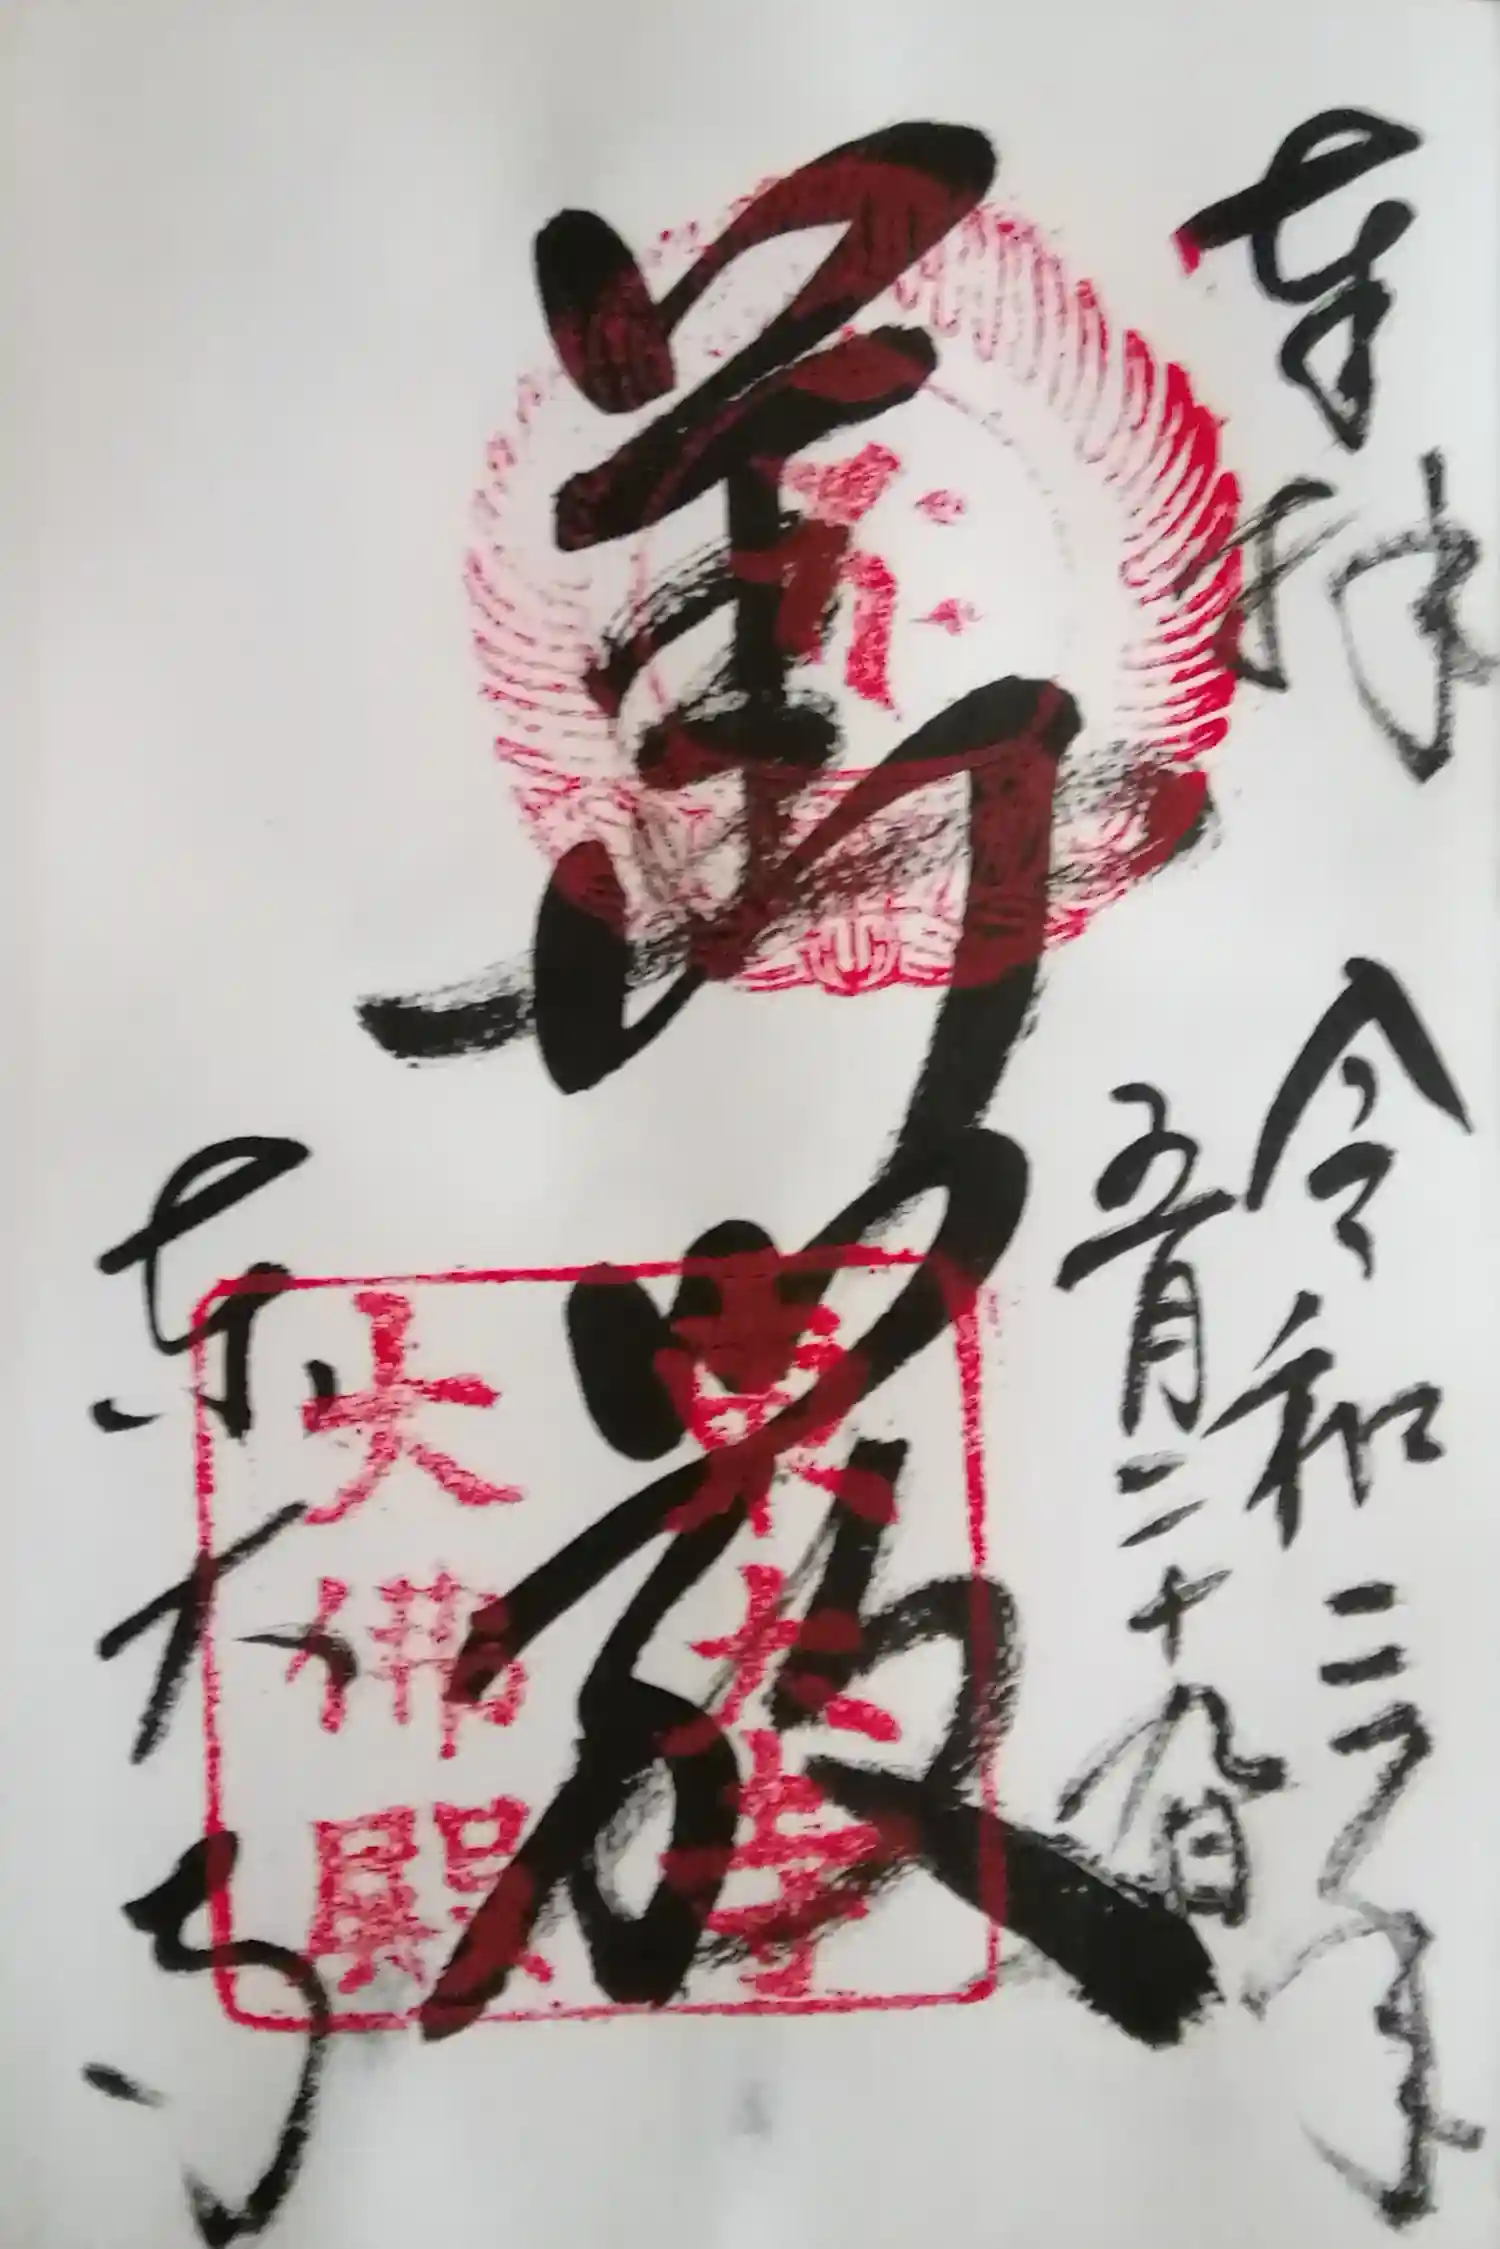 奉拝
令和二年
五月二十九日
華厳
東大寺
大佛殿
東大寺